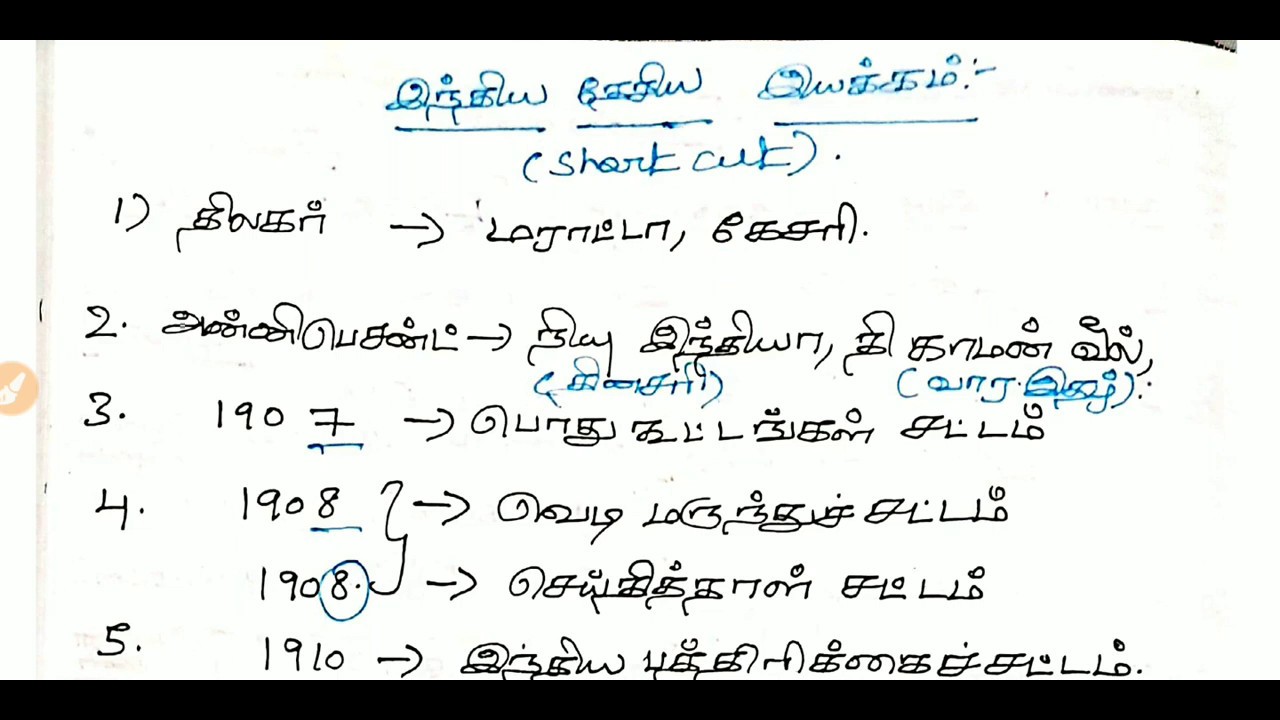 இந்திய தேசிய இயக்கம்:-
(short cut).
1) திலகர் → மராட்டா, கேசரி.
2. அன்னிபெசன்ட் → நியு இந்தியா, தி காமன் வீல்,
(தினசரி) (வார இதழ்).
3. 1907 → பொது கூட்டங்கள் சட்டம்
4. 1908 } → வெடி மருந்துச் சட்டம்
1908. → செய்தித்தாள் சட்டம்
5. 1910 → இந்திய பத்திரிக்கைச்சட்டம்.